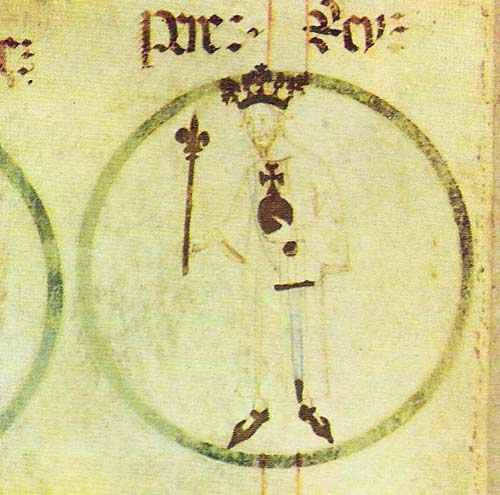 pere: Rey: